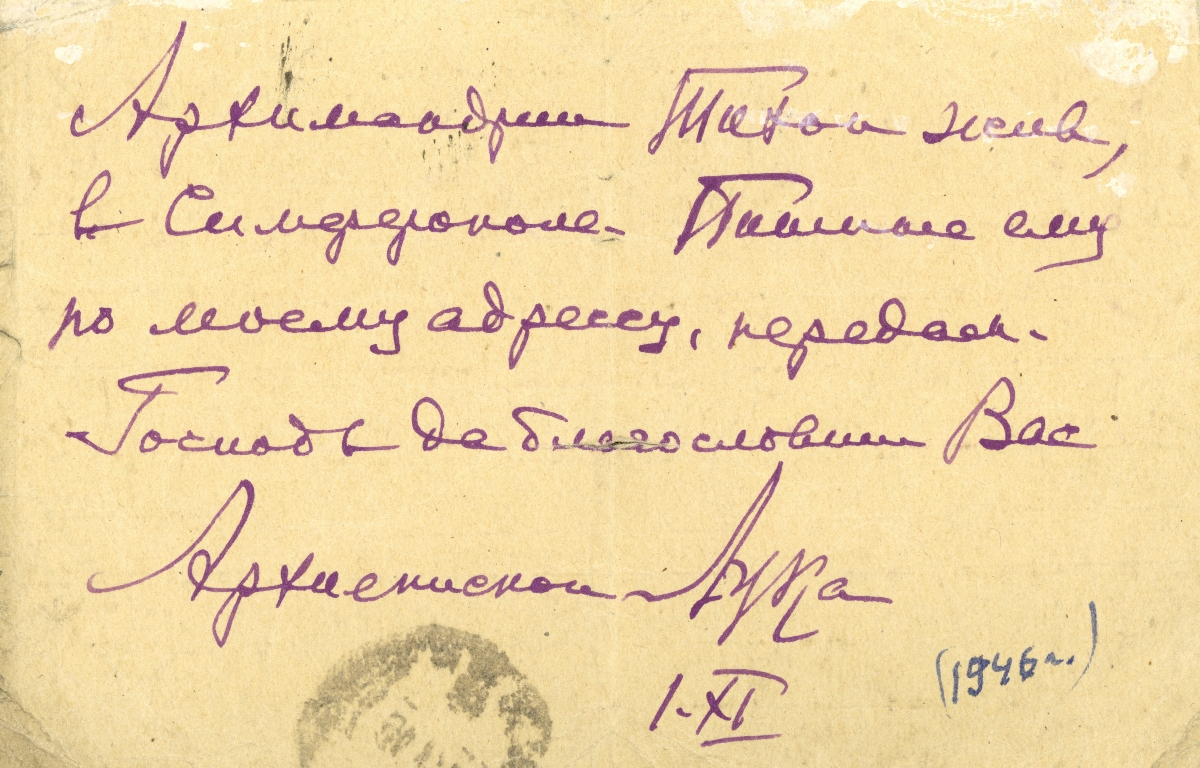 Архимандрит Тихон жив,
в Симферополе. Пишите ему
по моему адрессу, передам.
Господь да благословит Вас
Архиепископ Лука
1-XI
(1946 г.)